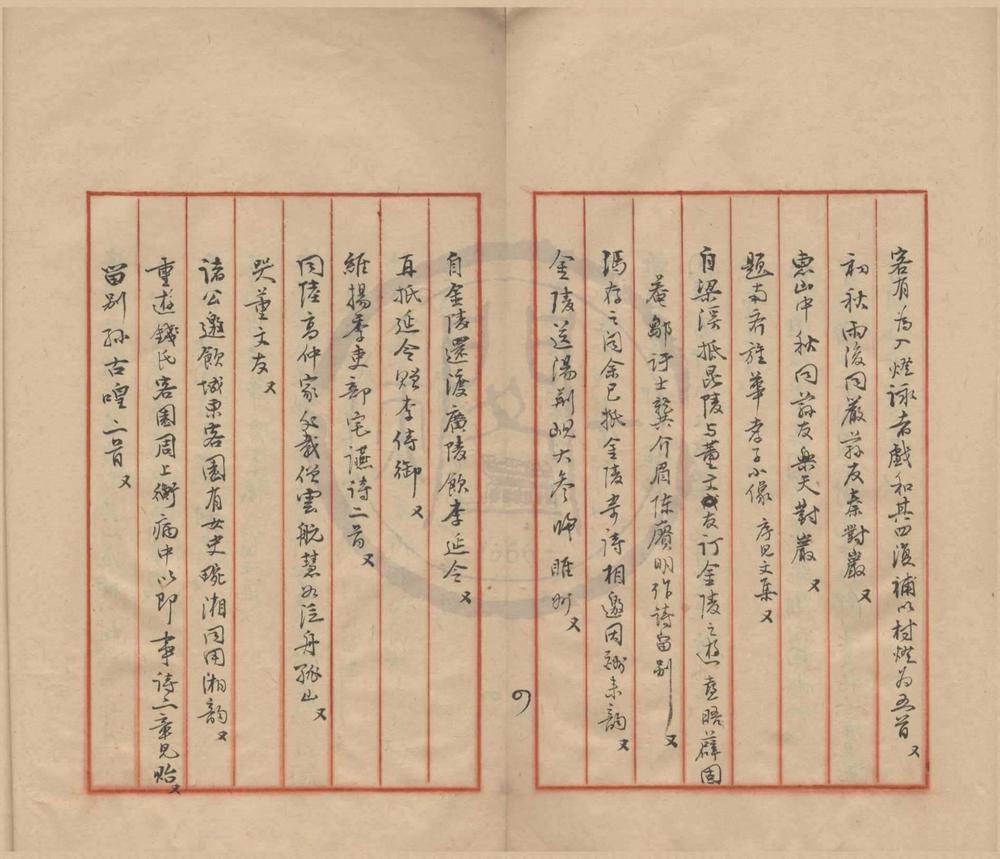 客有為八燈詠者戲和其四復補以村燈為五首又
初秋雨後同嚴蓀友秦對巖又
惠山中秋同蓀友樂天對巖又
題南齊旌華孝子小像 序見文集又
自梁溪抵毘陵与董文友訂金陵之遊喜晤薛固
菴鄒訏士龔介眉陳賡明作詩留別又
馮存之聞余已抵金陵寄詩相邀因酬來韵又
金陵送湯荊峴大參歸睢州又
自金陵還渡廣陵飲李延令又
再抵延令贈李侍御又
維揚季吏部宅讌詩二首又
同陸高仲家父載僧雲航慧如泛舟孤山又
哭董文友又
諸公邀飲城東客園有女史琬湘同用湘韵又
重遊錢氏客園周上衡病中以即事詩二章見貽又
留別孫古喤二首又